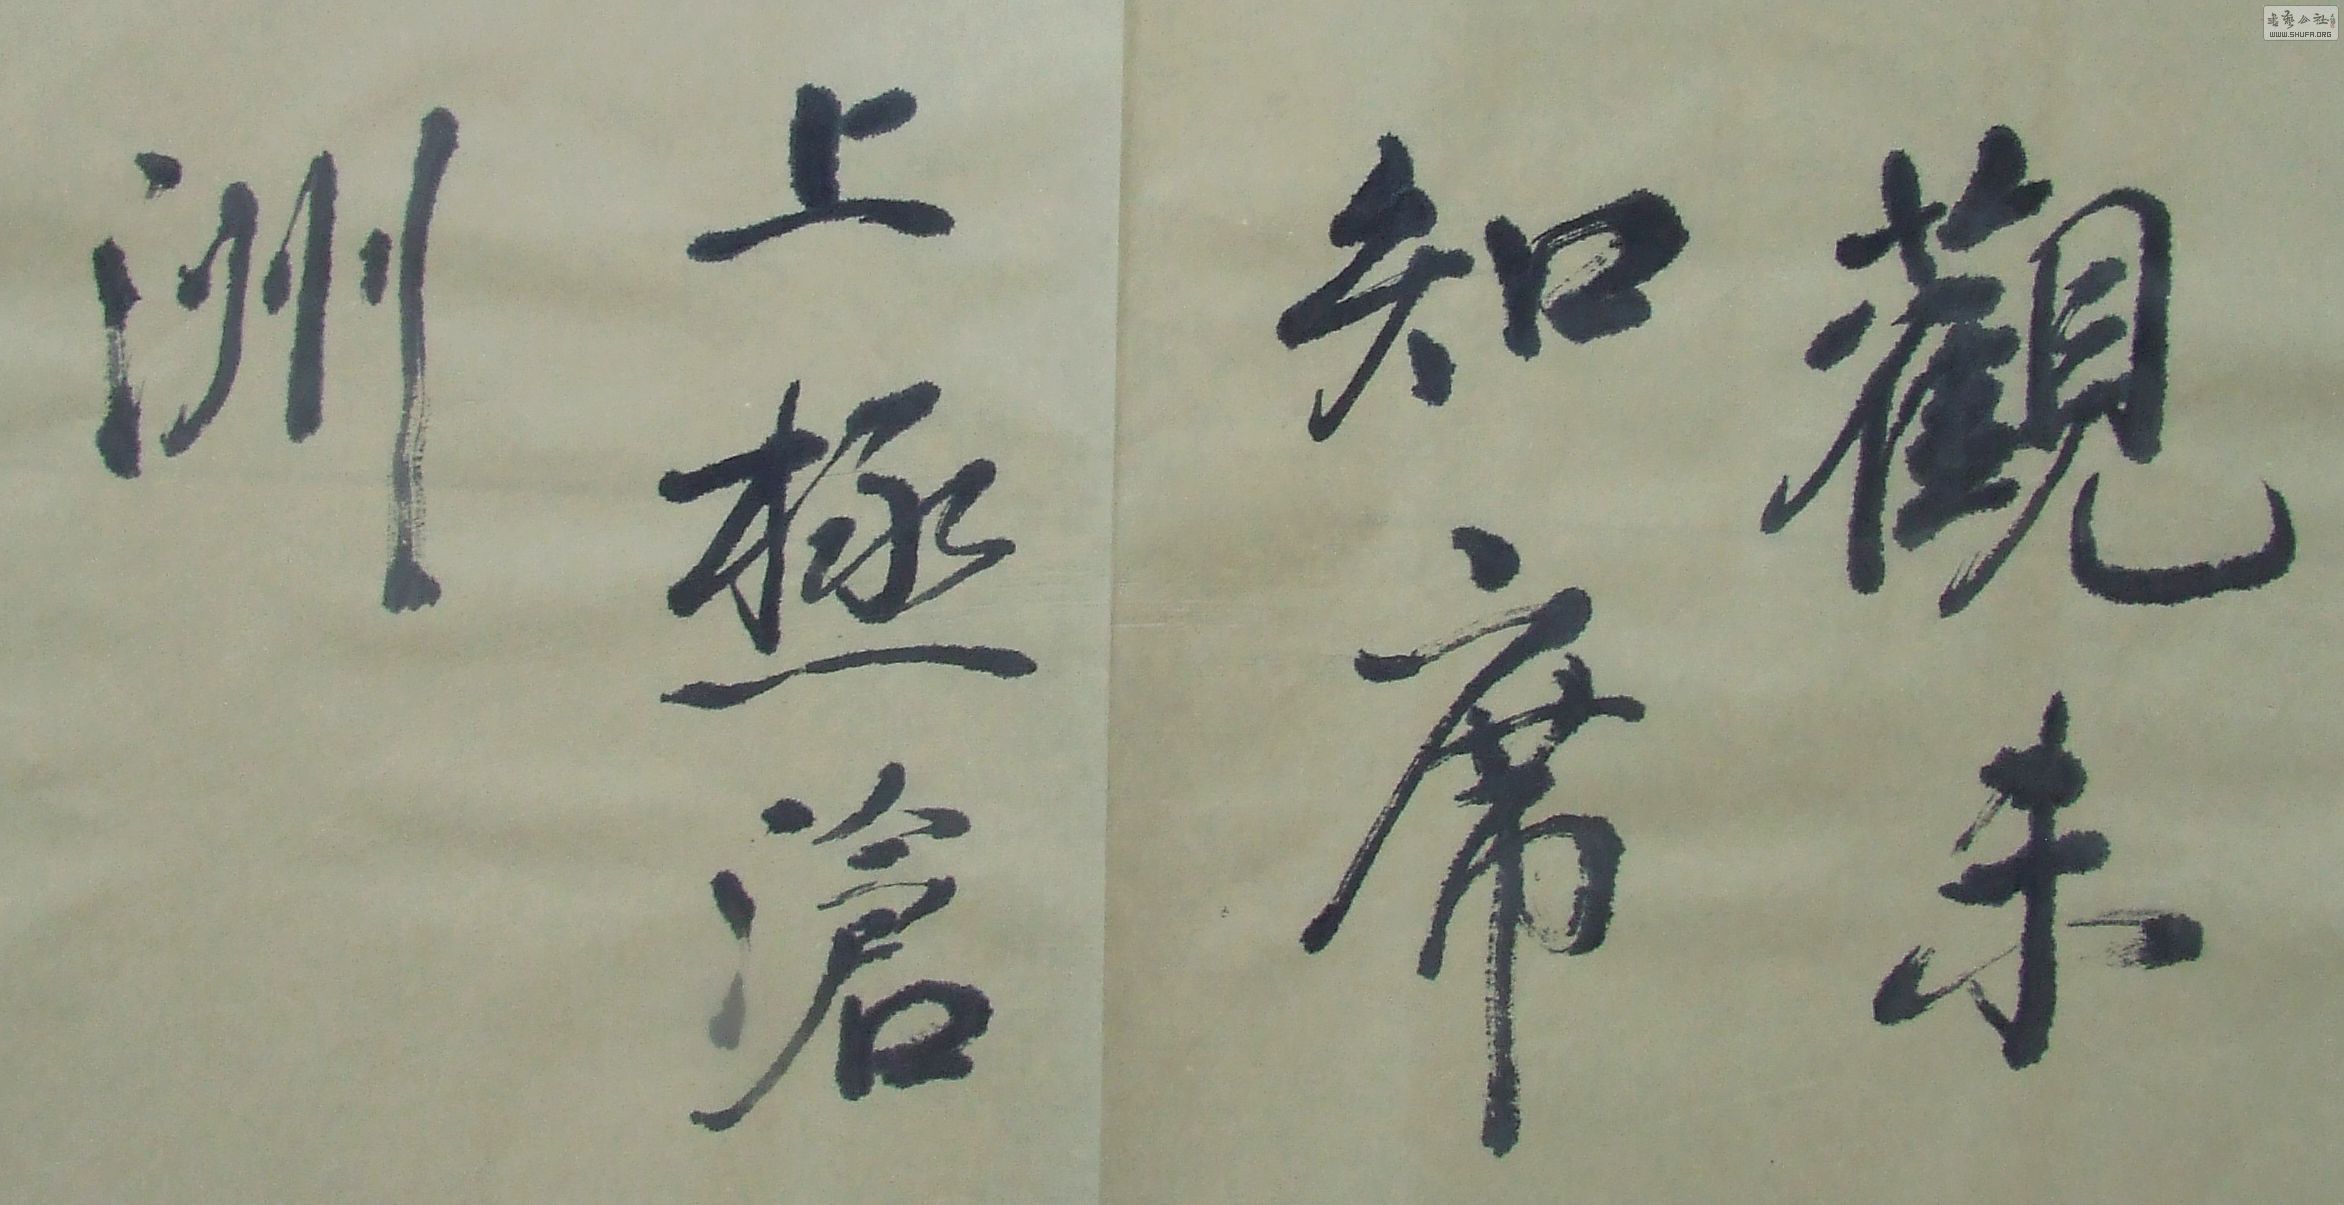 觀未
知席
上極滄
洲
書藝公社
WWW.SHUFA.ORG